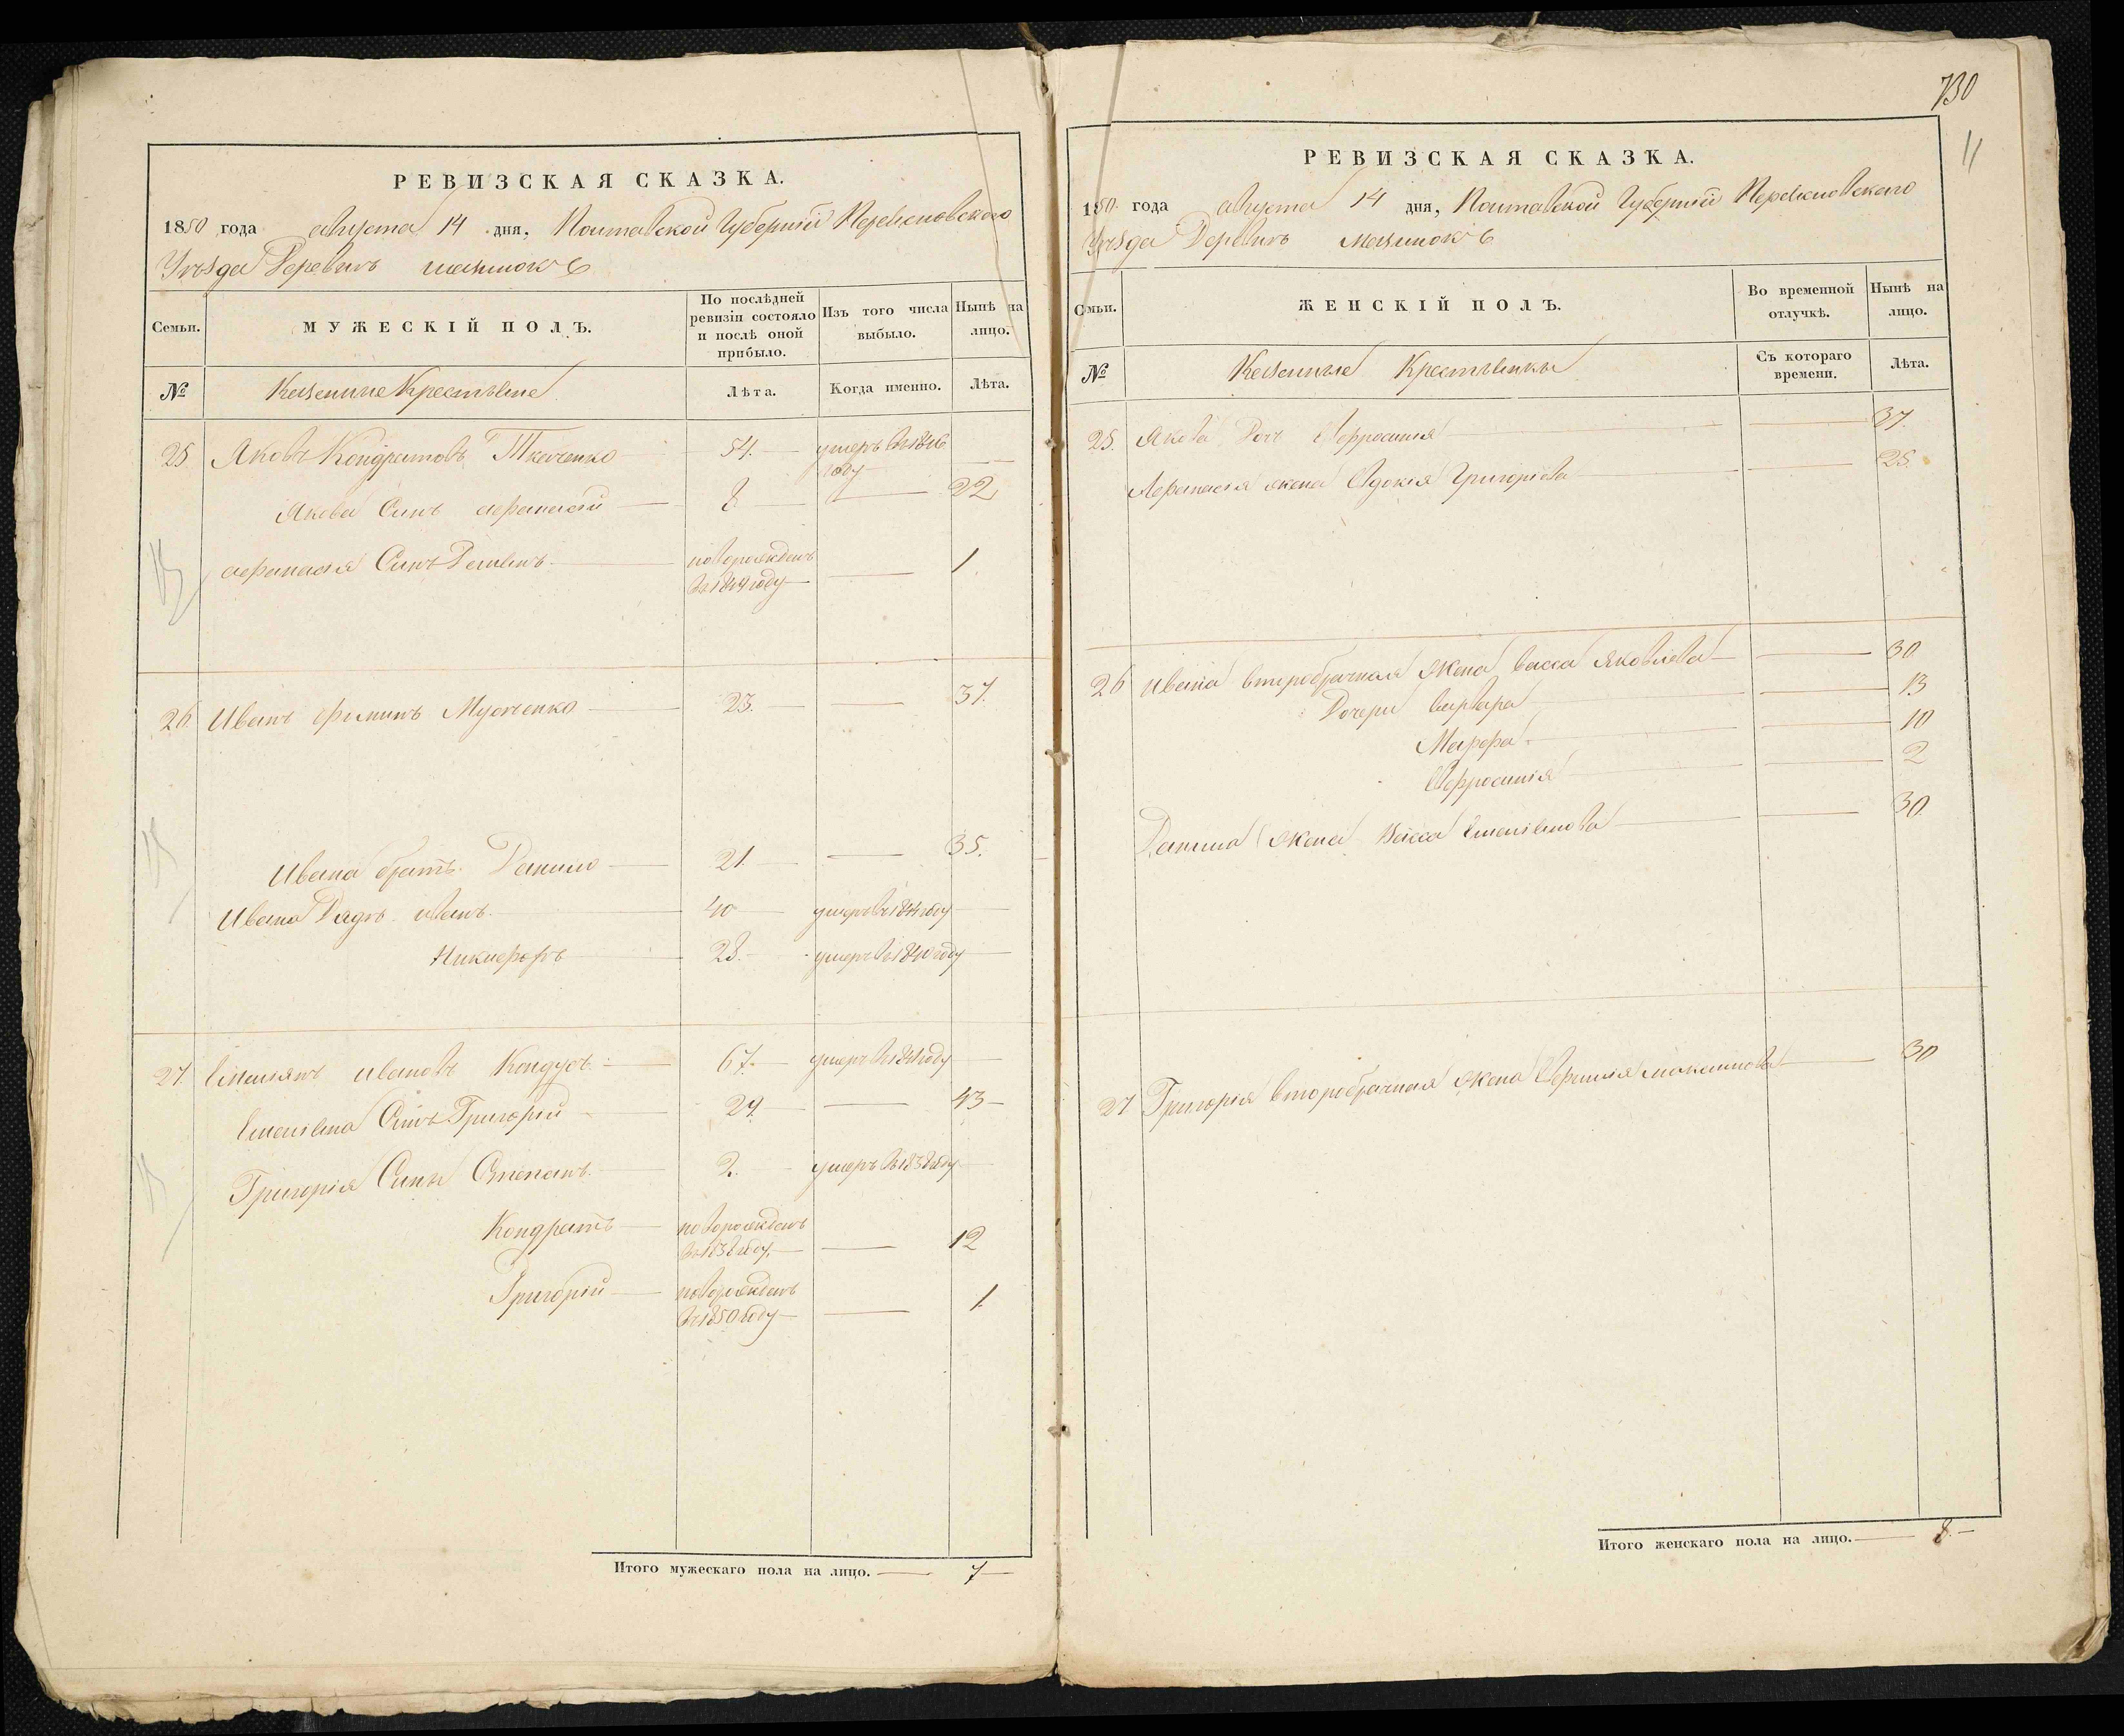 730
11
РЕВИЗСКАЯ СКАЗКА.
1850 года августа 14 дня, Полтавской Губернии
Уезда Деревнѣ
Семьи. МУЖЕСКІЙ ПОЛЪ. По послѣдней ревизіи состояло и послѣ оной прибыло. Изъ того числа выбыло. Нынѣ на лицо.
№ Казенные Крестьяне Лѣта. Когда именно. Лѣта.
25 Яковъ Кондратовъ Ткаченко 54. умеръ въ 1846 году
Якова Сынъ афанасій 8 22
афанасія Сынъ новорожденъ въ 1849 году 1
26 Иванъ 23. 37.
Ивана братъ Данило 21. 35.
Ивана Дядя иванъ 40 умеръ въ году
Никифоръ 28. умеръ въ 1840 году
27. Емельянъ ивановъ 67. умеръ въ году
Емельяна Сынъ Григорій 29. 43
Григорія Сыны Степанъ 2. умеръ въ 1838 году
Кондратъ новорожденъ въ 1838 году 12
Григорій новорожденъ въ 1850 году 1.
Итого мужескаго пола на лицо. 7
РЕВИЗСКАЯ СКАЗКА.
1850 года августа 14 дня, Полтавской Губернии
Уезда Деревнѣ
Семьи. ЖЕНСКІЙ ПОЛЪ. Во временной отлучкѣ. Нынѣ на лицо.
№ Казенные Крестьянки Съ котораго времени. Лѣта.
25. Якова Дочь Ефросинія 37.
Афанасія жена Евдокія Григоріева 25.
26 Ивана второбрачная жена Васса Яковлева 30
Дочери Варвара 13
Марфа 10
Ефросинія 2
Данила жена Васса Емельянова 30
27 Григорія второбрачная жена 30
Итого женскаго пола на лицо. 8.